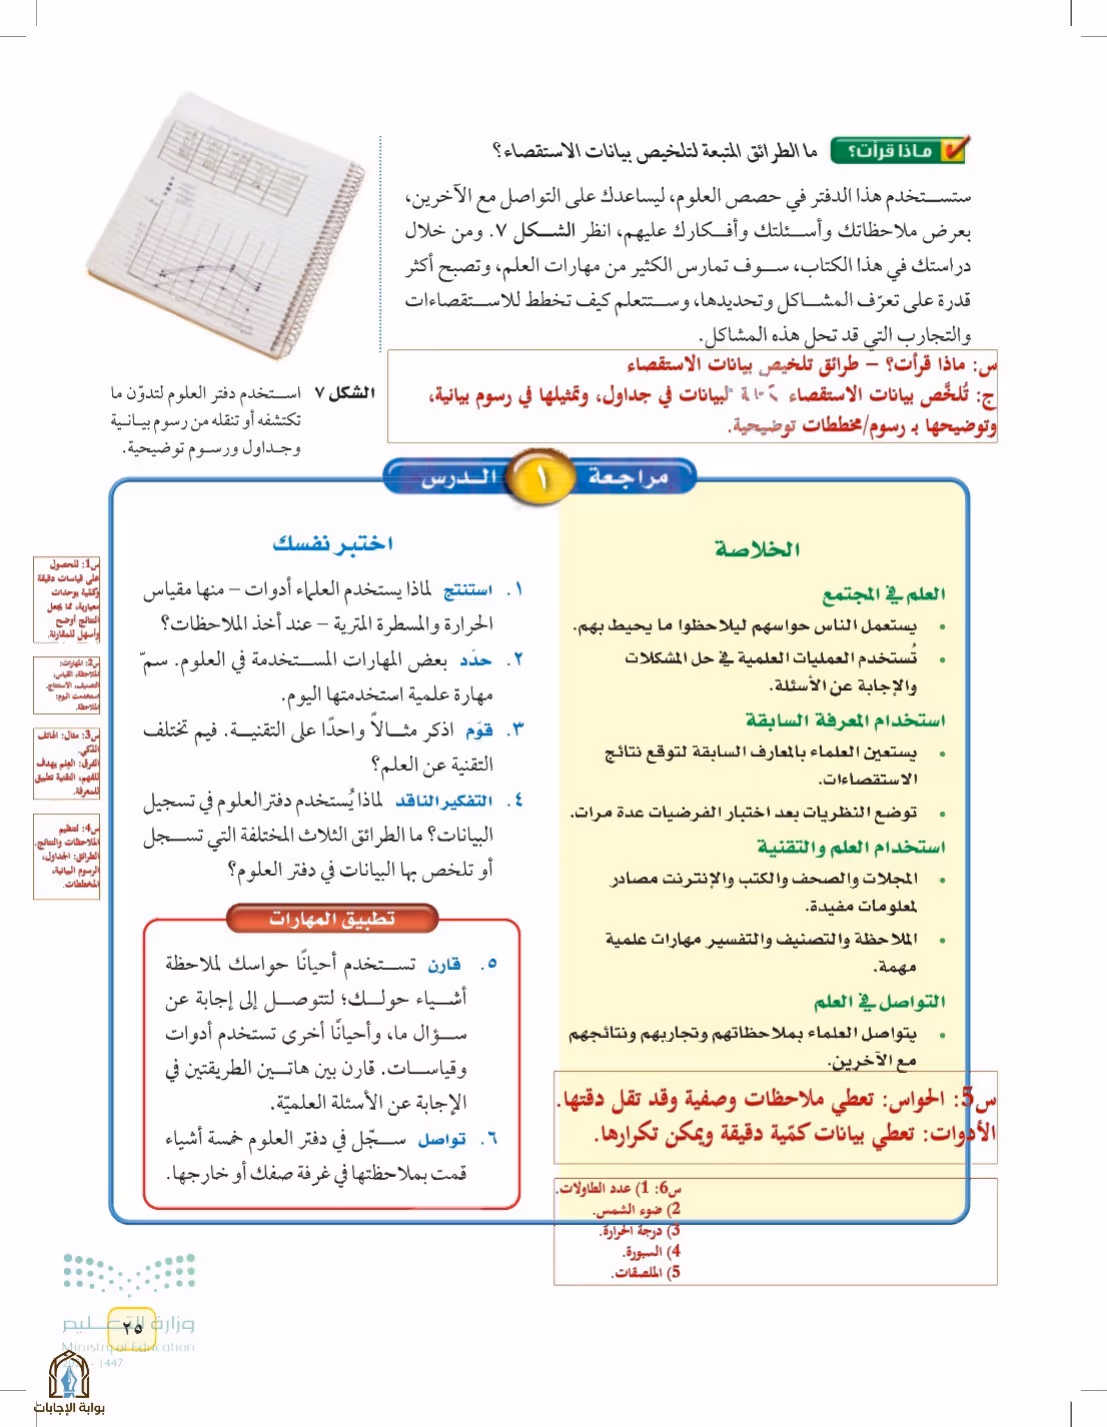 ماذا قرأت؟ ما الطرائق المتبعة لتلخيص بيانات الاستقصاء؟
ستستخدم هذا الدفتر في حصص العلوم، ليساعدك على التواصل مع الآخرين،
بعرض ملاحظاتك وأسئلتك وأفكارك عليهم، انظر الشكل ٧. ومن خلال
دراستك في هذا الكتاب، سوف تمارس الكثير من مهارات العلم، وتصبح أكثر
قدرة على تعرّف المشاكل وتحديدها، وستتعلم كيف تخطط للاستقصاءات
والتجارب التي قد تحل هذه المشاكل.
س: ماذا قرأت؟ – طرائق تلخيص بيانات الاستقصاء
ج: تُلخَّص بيانات الاستقصاء البيانات في جداول، وتمثيلها في رسوم بيانية،
وتوضيحها بـ رسوم/مخططات توضيحية.
الشكل ٧ استخدم دفتر العلوم لتدوّن ما
تكتشفه أو تنقله من رسوم بيانية
وجداول ورسوم توضيحية.
مراجعة ١ الدرس
الخلاصة
العلم في المجتمع
• يستعمل الناس حواسهم ليلاحظوا ما يحيط بهم.
• تُستخدم العمليات العلمية في حل المشكلات
والإجابة عن الأسئلة.
استخدام المعرفة السابقة
• يستعين العلماء بالمعارف السابقة لتوقع نتائج
الاستقصاءات.
• توضع النظريات بعد اختبار الفرضيات عدة مرات.
استخدام العلم والتقنية
• المجلات والصحف والكتب والإنترنت مصادر
لمعلومات مفيدة.
• الملاحظة والتصنيف والتفسير مهارات علمية
مهمة.
التواصل في العلم
• يتواصل العلماء بملاحظاتهم وتجاربهم ونتائجهم
مع الآخرين.
س5: الحواس: تعطي ملاحظات وصفية وقد تقل دقتها.
الأدوات: تعطي بيانات كمّية دقيقة ويمكن تكرارها.
س6: 1) عدد الطاولات.
2) ضوء الشمس.
3) درجة الحرارة.
4) السبورة.
5) الملصقات.
اختبر نفسك
١. استنتج لماذا يستخدم العلماء أدوات – منها مقياس
الحرارة والمسطرة المترية – عند أخذ الملاحظات؟
٢. حدّد بعض المهارات المستخدمة في العلوم. سمّ
مهارة علمية استخدمتها اليوم.
٣. قوّم اذكر مثالاً واحدًا على التقنية. فيم تختلف
التقنية عن العلم؟
٤. التفكير الناقد لماذا يُستخدم دفتر العلوم في تسجيل
البيانات؟ ما الطرائق الثلاث المختلفة التي تسجل
أو تلخص بها البيانات في دفتر العلوم؟
تطبيق المهارات
٥. قارن تستخدم أحيانًا حواسك لملاحظة
أشياء حولك؛ لتتوصل إلى إجابة عن
سؤال ما، وأحيانًا أخرى تستخدم أدوات
وقياسات. قارن بين هاتين الطريقتين في
الإجابة عن الأسئلة العلميّة.
٦. تواصل سجّل في دفتر العلوم خمسة أشياء
قمت بملاحظتها في غرفة صفك أو خارجها.
س1: للحصول
على قياسات دقيقة
وكمّية بوحدات
معيارية، مما يجعل
النتائج أوضح
وأسهل للمقارنة.
س2: المهارات:
الملاحظة، القياس،
التصنيف، الاستنتاج.
استخدمت اليوم:
الملاحظة.
س3: مثال: الهاتف
الذكي.
الفرق: العِلم يهدف
للفهم، التقنية تطبيق
للمعرفة.
س4: لتنظيم
الملاحظات والنتائج.
الطرائق: الجداول،
الرسوم البيانية،
المخططات.
وزارة التعليم
٢٥
Ministry of Education
- 1447
بوابة الإجابات